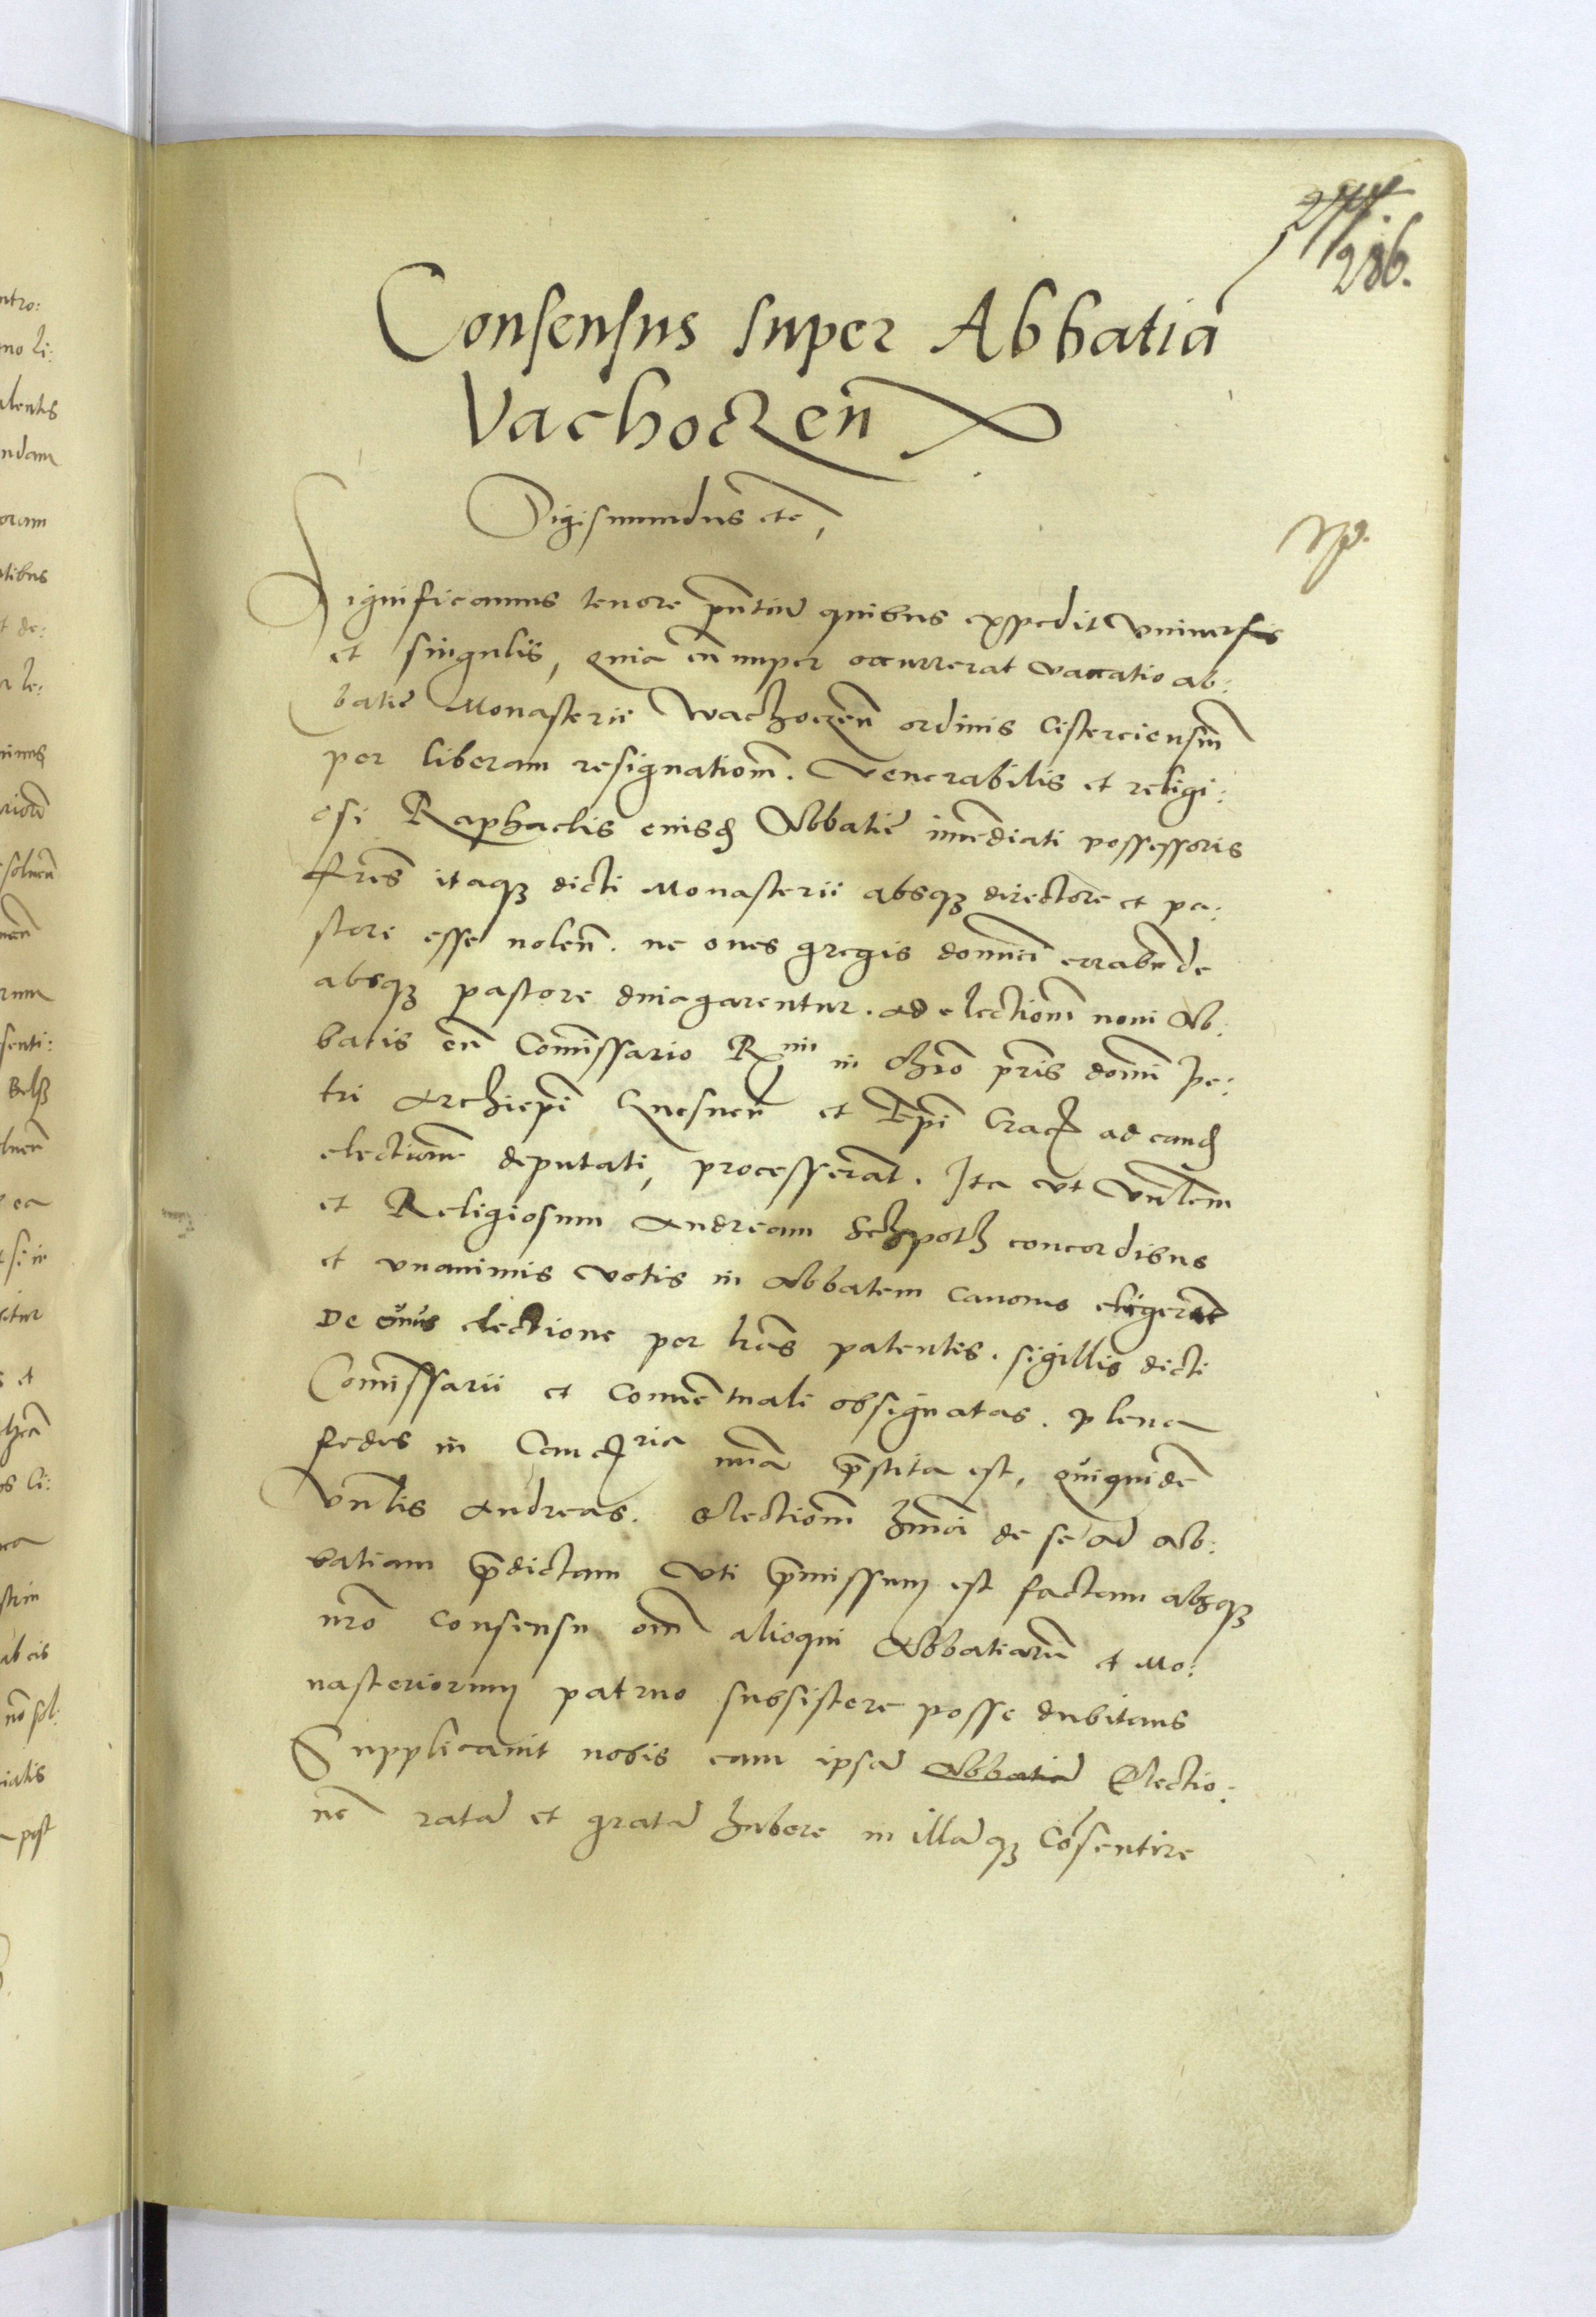 286.
Consensus super Abbatia
Vachoczen̄
Sigismundus etc,
Significamus tenore pn̄tiu̅ quibus expedit vniuersis
et singulis, quia cu̅ nuper occurrerat vacatio ab:
batie Monasterii wachoczen̄ ordinis Cisterciensiu̅
per liberam resignatiom̄. Venerabilis et religi:
osi Raphaelis eiusd Abbatie im̄ediati possessoris
fres̄ itaqꝫ dicti Monasterii absqꝫ directore et pa:
store esse nolen̄. ne oues gregis dominici errabu̅de
absqꝫ pastore diuagarentur. ad electiom̄ noui Ab:
batis cu̅ Com̄issario R̄mi in chro̅ pr̄is domi̅ Pe:
tri Archiepi̅ Gnesnen̄ et Epi̅ Crac̄ ad eand
electione̅ deputati, processera̅t. Ita vt Vn̄lem
et Religiosum Andream Schpoth concordibus
et vnanimis votis in Abbatem canonis eligera̅t
De cuius electione per lr̄as patentes. sigillis dicti
Com̄issarii et Conue̅tuali obsignatas. plena
fides in Canc̄ria nr̄a p̄stita est, Quiquide̅
Vn̄lis Andreas. electiom̄ hm̄oi de se ad ab:
batiam p̄dictam vti p̄missum est factam absqꝫ
nr̄o consensu om̄ alioqui Abbatiaru̅ et Mo:
nasteriorum patrno subsistere posse dubitans
Supplicauit nobis eam ipsa̅ Abbatia̅ Electio:
ne̅ rata̅ et grata̅ habere in illa̅qꝫ co̅sentire